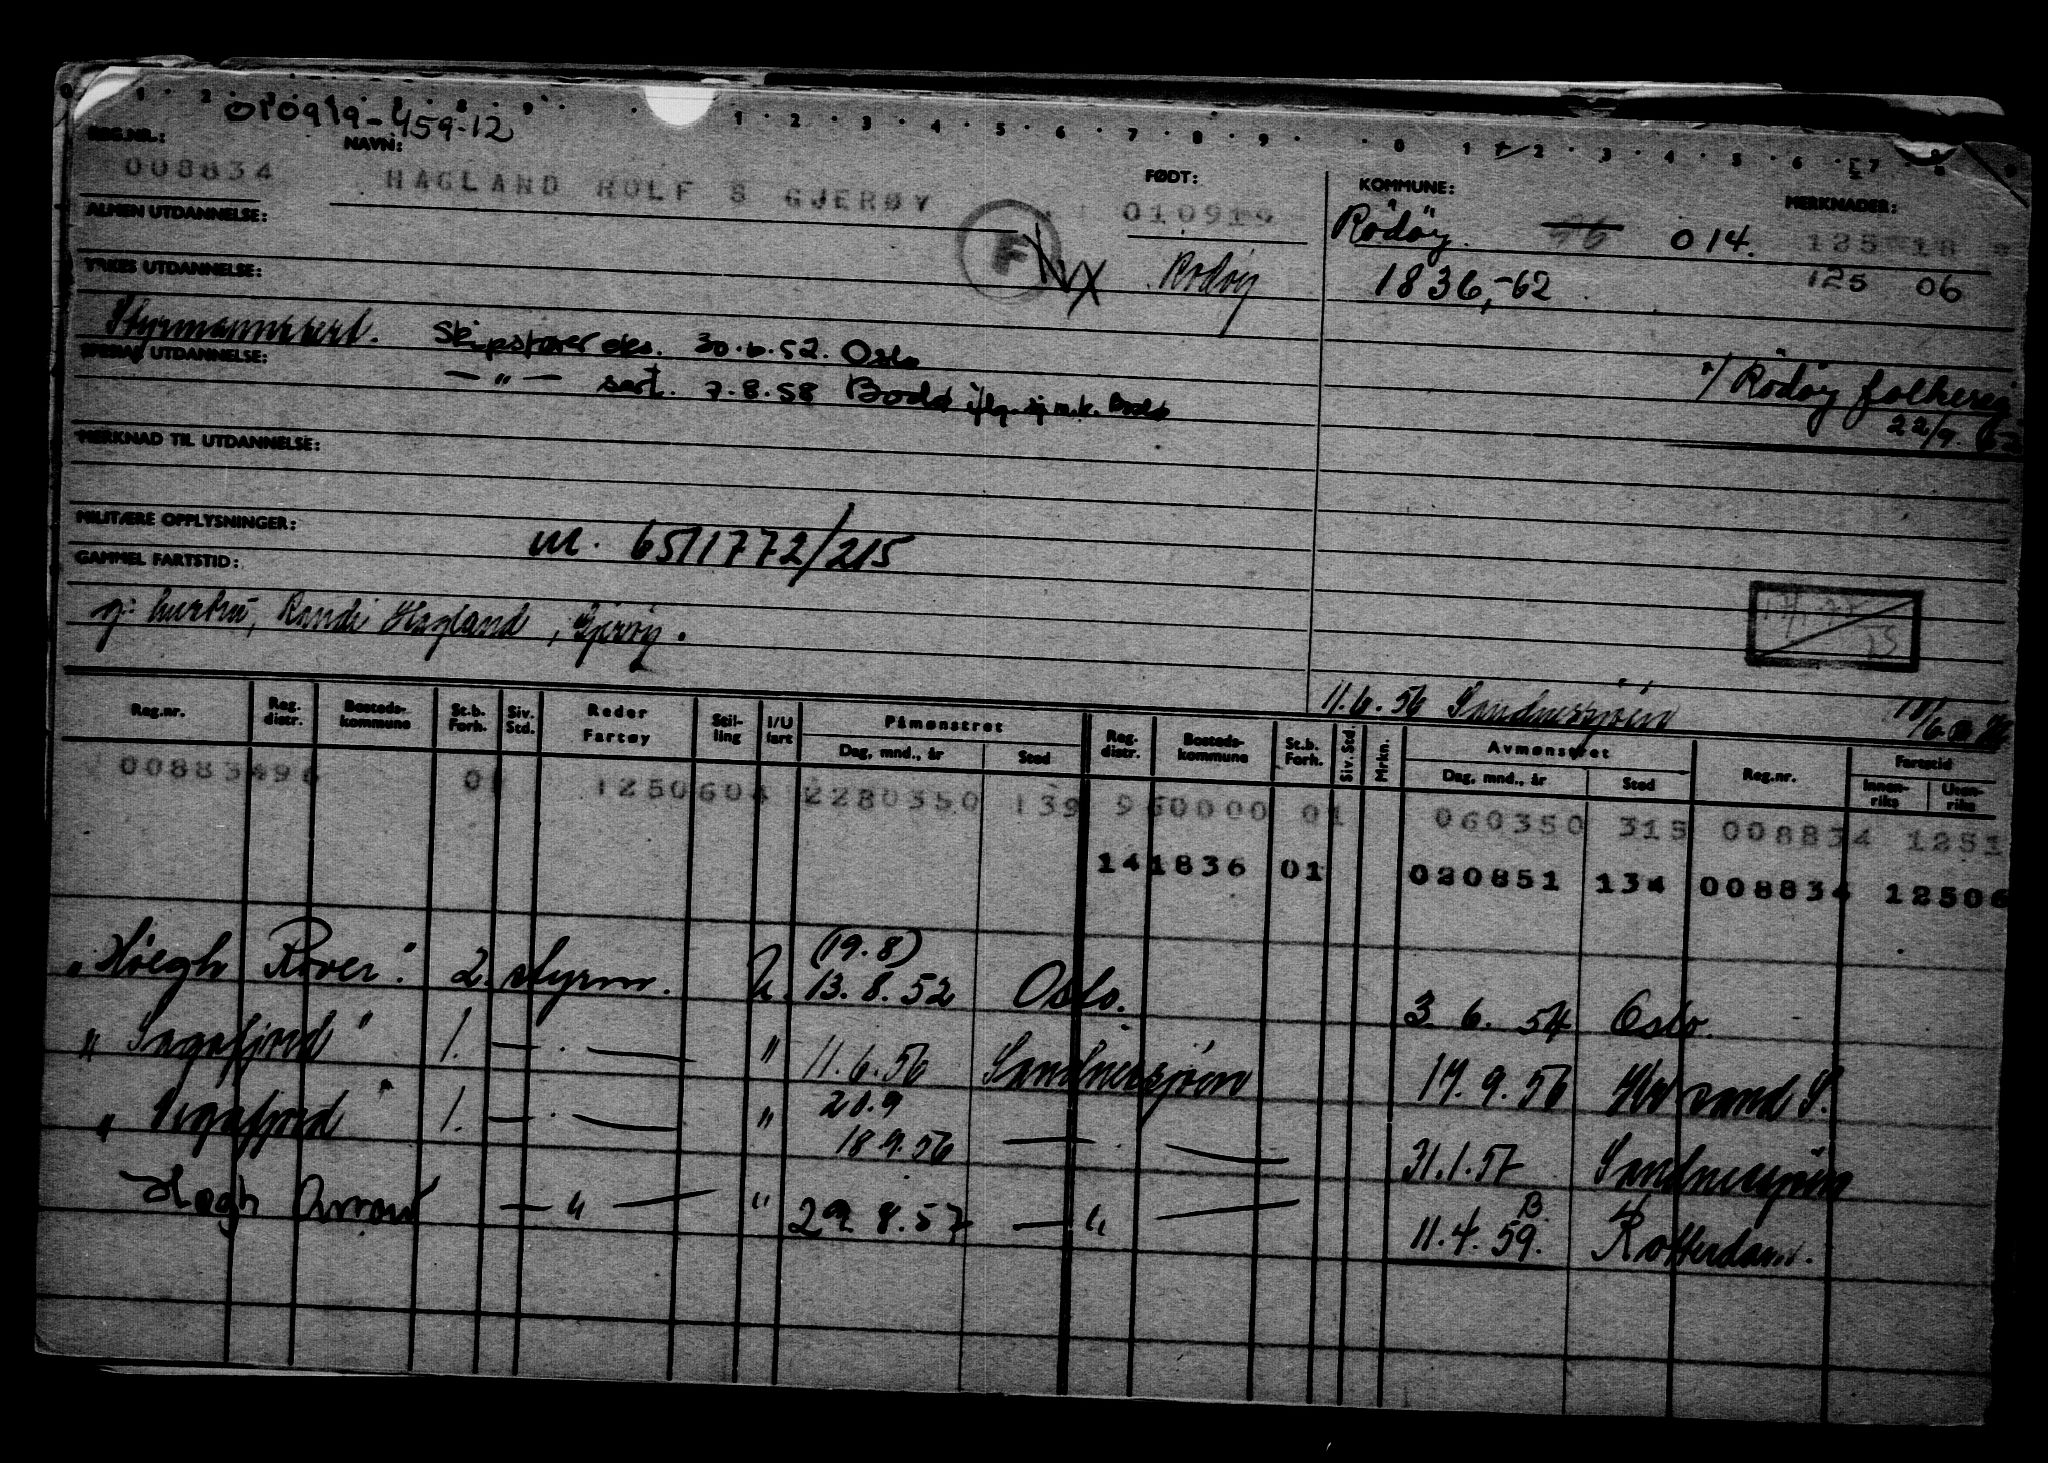 010919-459-12
REG.NR.: NAVN: FØDT: KOMMUNE: MERKNADER:
008834 HAGLAND ROLF S GJERØY 010919 Rödöy. 96 014. 125 18
ALMEN UTDANNELSE: F Rödöy 1836,-62 125 06
YRKES UTDANNELSE:
Styrmannssert. Skipsförer eks. 30.6.52. Oslo
SPESIAL UTDANNELSE: — " — sert. 7.8.58 Bodö m.k. Bodö
Rödöy folkereg
22/9 62
MERKNAD TIL UTDANNELSE:
MILITÆRE OPPLYSNINGER: M. 6511772/215
GAMMEL FARTSTID:
g: hustru, Randi Hagland, Gjeröy.
11.6.56 Sandnessjöen
Reg.nr. Reg. distr. Bosteds-kommune St.b. Forh. Siv. Std. Reder Fartøy Stil-ling I/U fart Påmønstret Dag, mnd., år Sted Reg. distr. Bosteds-kommune St.b. Forh. Siv. Std. Mrkn. Avmønstret Dag, mnd., år Sted Reg.nr. Fartstid Innen-riks Uten-riks
008834 96 01 1250604 2280350 139 960000 01 060350 315 008834 1251
141836 01 020851 134 008834 12506
"Höegh Rover". 2. styrm. U. (19.8) 13.8.52 Oslo. 3 6. 54 Oslo.
"Sagafjord" 1. — . — " 11.6.56 Sandnessjöen 17.9.56 Kr sand S.
" " 1. — . — " 21.9 18.9.56 — . — 31.1.57 Sandnessjöen
Höegh Arrow — " — " 29.8.57 — " — 11.4.59. B. Rotterdam.